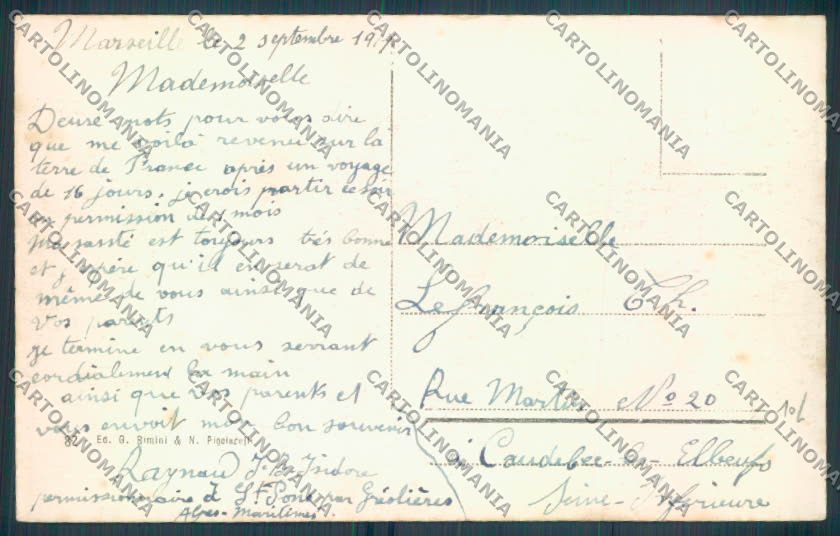 Marseille le 2 septembre 1919.
Mademoiselle
Deux mots pour vous dire
que me voilà revenu sur la
terre de France après un voyage
de 16 jours. je crois partir ce soir
en permission de mois
Ma santé est toujours très bonne
et j'espère qu'il en serat de
même de vous ainsi que de
Vos parents
je termine en vous serrant
cordialement la main
ainsi que vos parents et
vous envoit mon bon souvenir
82 Ed. G. Rimini & N.
Raynaud J. Bte Isidore
permissionnaire à St Pons par Gréolières
Alpes-Maritimes.
Mademoiselle
Lefrançois Th.
Rue Martin No 20
à Caudebec-les-Elbeufs
Seine-Inférieure
No 1
CARTOLINOMANIA